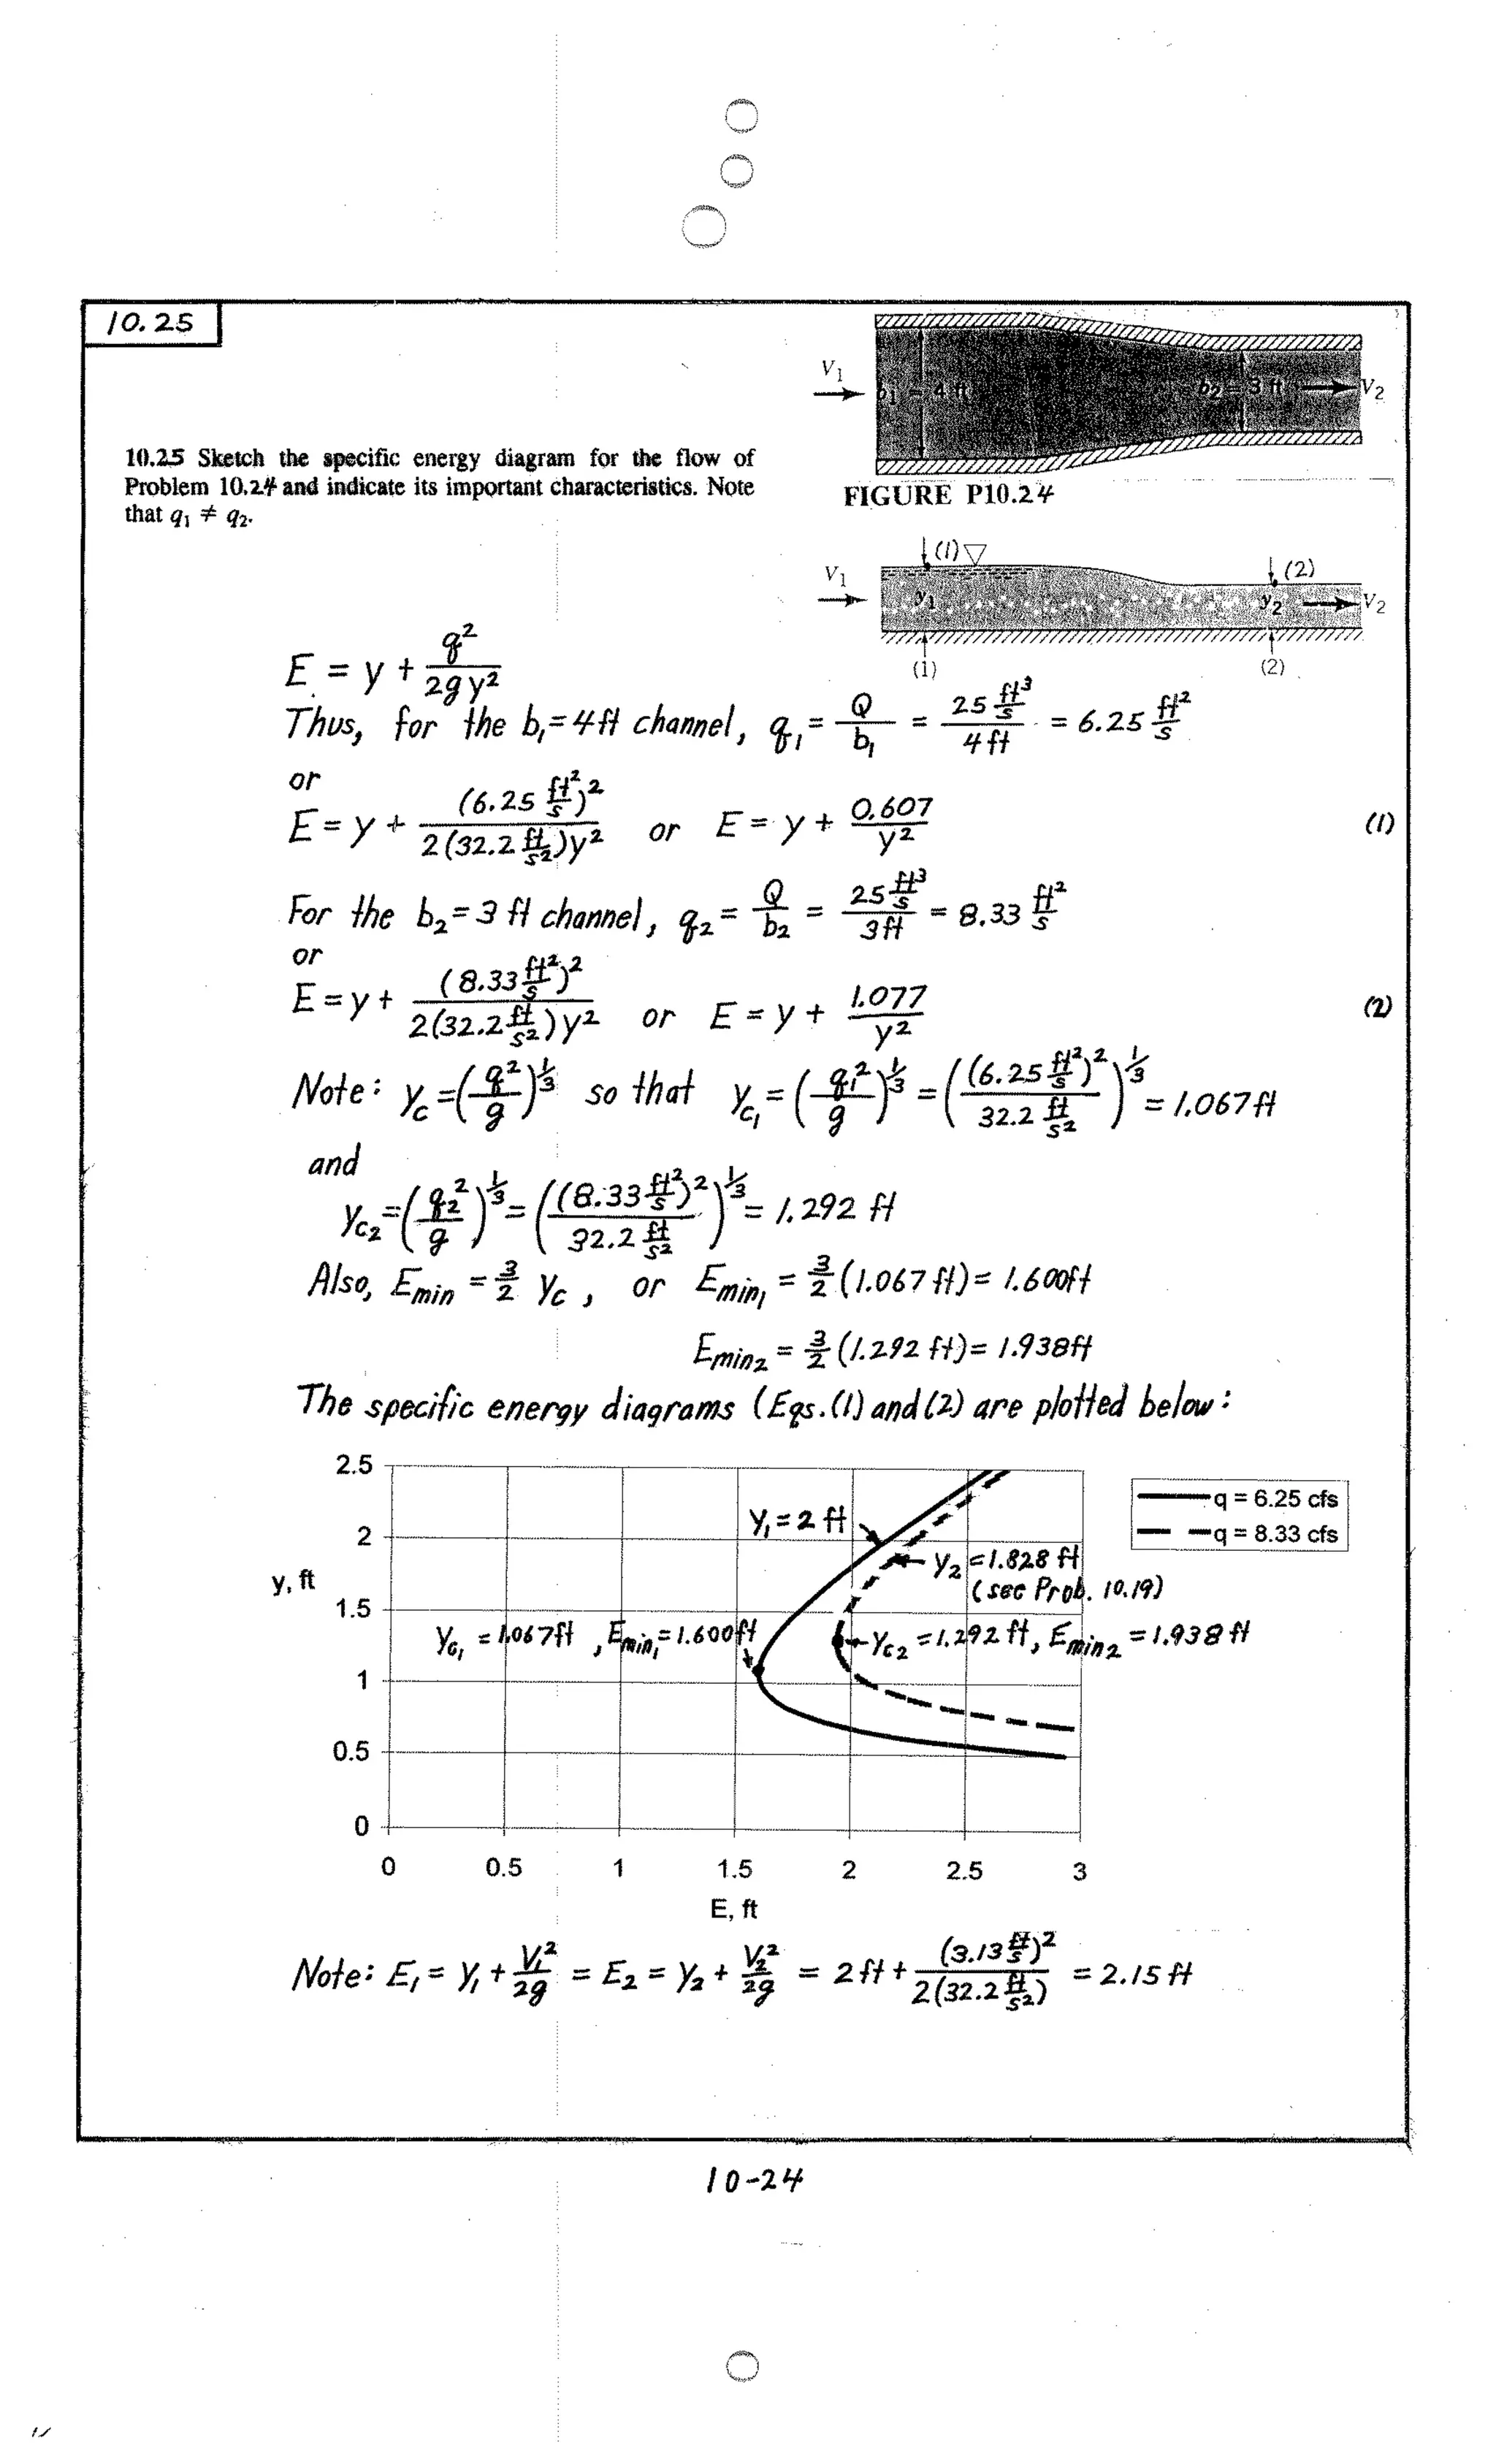 10.25
V1
b1 = 4 ft
b2 = 3 ft
V2
10.25 Sketch the specific energy diagram for the flow of
Problem 10.24 and indicate its important characteristics. Note
that q1 ≠ q2.
FIGURE P10.24
(1)
(2)
V1
y1
y2
V2
(1)
(2)
E = y + q²/2gy²
Thus, for the b1 = 4 ft channel, q1 = Q/b1 = 25 ft³/s / 4 ft = 6.25 ft²/s
or
E = y + (6.25 ft²/s)² / 2(32.2 ft/s²)y² or E = y + 0.607/y² (1)
For the b2 = 3 ft channel, q2 = Q/b2 = 25 ft³/s / 3 ft = 8.33 ft²/s
or
E = y + (8.33 ft²/s)² / 2(32.2 ft/s²)y² or E = y + 1.077/y² (2)
Note: yc = (q²/g)^1/3 so that yc1 = (q1²/g)^1/3 = ((6.25 ft²/s)² / 32.2 ft/s²)^1/3 = 1.067 ft
and
yc2 = (q2²/g)^1/3 = ((8.33 ft²/s)² / 32.2 ft/s²)^1/3 = 1.292 ft
Also, Emin = 3/2 yc, or Emin1 = 3/2 (1.067 ft) = 1.600 ft
Emin2 = 3/2 (1.292 ft) = 1.938 ft
The specific energy diagrams (Eqs. (1) and (2) are plotted below:
2.5
q = 6.25 cfs
y1 = 2 ft
2
q = 8.33 cfs
y2 = 1.828 ft
y, ft
(see Prob. 10.19)
1.5
yc1 = 1.067 ft, Emin1 = 1.600 ft
yc2 = 1.292 ft, Emin2 = 1.938 ft
1
0.5
0
0 0.5 1 1.5 2 2.5 3
E, ft
Note: E1 = y1 + V1²/2g = E2 = y2 + V2²/2g = 2 ft + (3.13 ft/s)² / 2(32.2 ft/s²) = 2.15 ft
10-24